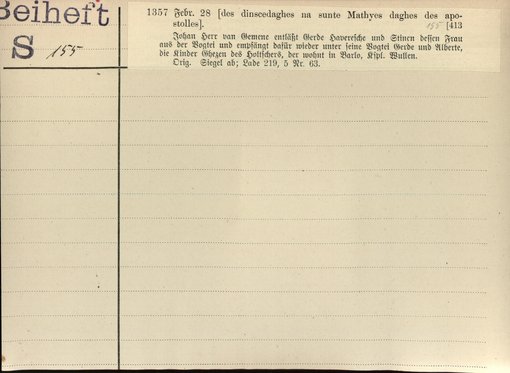 Beiheft
S 155
1357 Febr. 28 [des dinscedaghes na sunte Mathyes daghes des apo-
stolles]. 155 [413
Johan Herr van Gemene entläßt Gerde Haveresche und Stinen dessen Frau
aus der Vogtei und empfängt dafür wieder unter seine Vogtei Gerde und Alberte,
die Kinder Ghezen des Holtschers, der wohnt in Barlo, Kspl. Wullen.
Orig. Siegel ab; Lade 219, 5 Nr. 63.